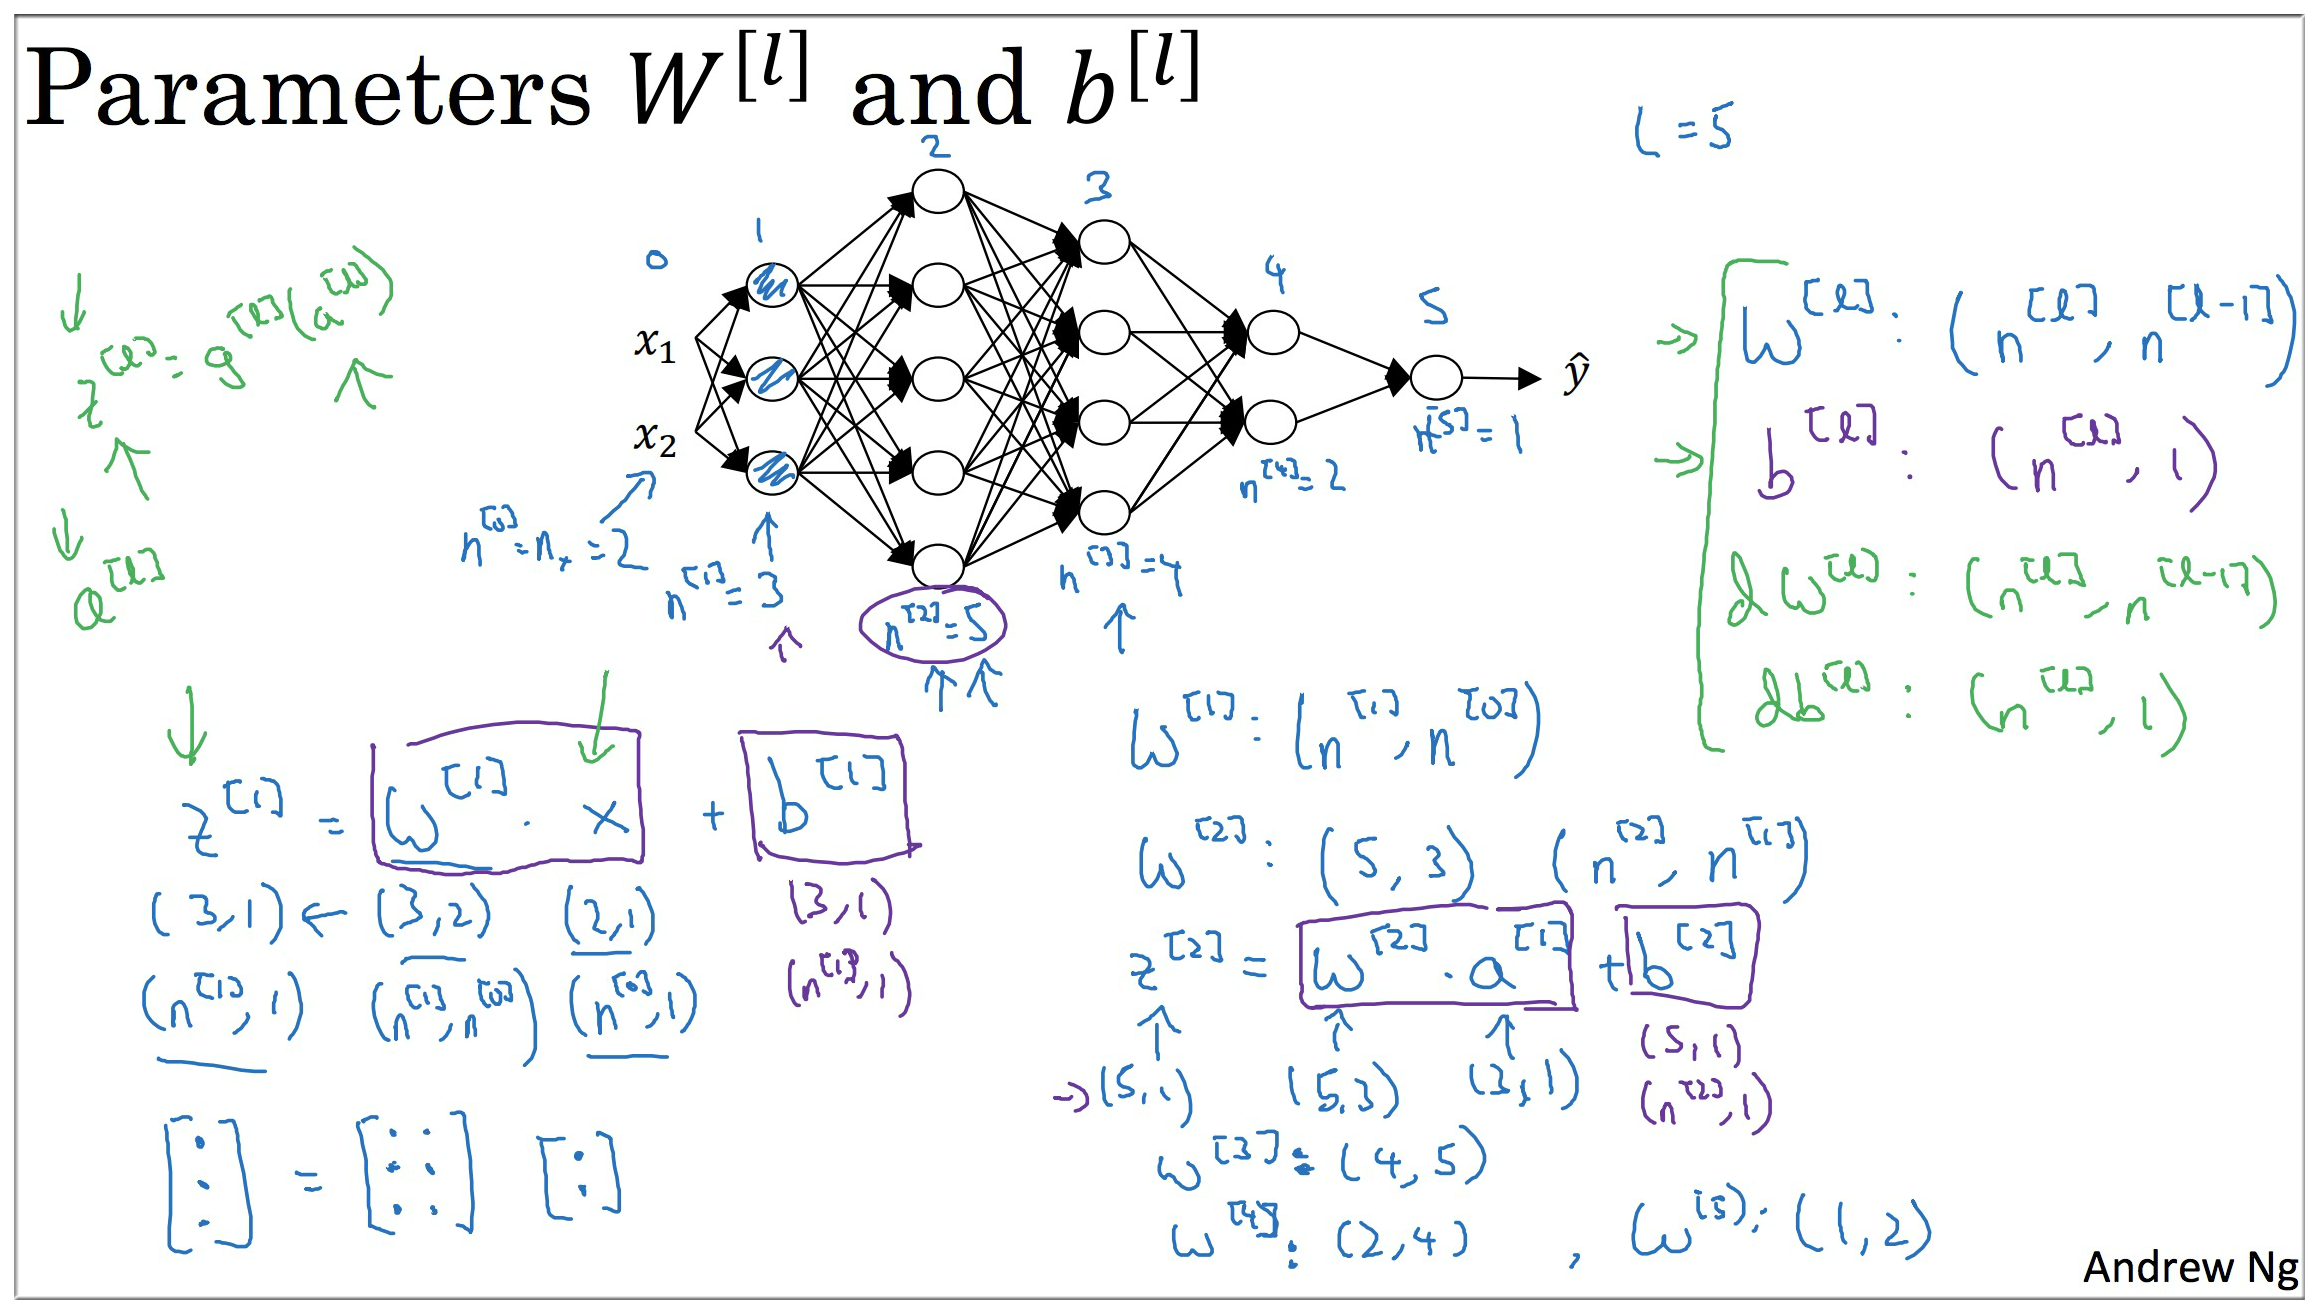 Parameters W^[l] and b^[l]
L = 5
0 1 2 3 4 5
x₁
x₂
ŷ
z^[l] = g^[l](a^[l])
a^[l]
n^[0] = nₓ = 2
n^[1] = 3
n^[2] = 5
n^[3] = 4
n^[4] = 2
n^[5] = 1
W^[l] : (n^[l], n^[l-1])
b^[l] : (n^[l], 1)
dW^[l] : (n^[l], n^[l-1])
db^[l] : (n^[l], 1)
z^[1] = W^[1] · x + b^[1]
(3,1) ← (3,2) (2,1) (3,1)
(n^[1], 1) (n^[1], n^[0]) (n^[0], 1) (n^[1], 1)
[ ⋮ ] = [ ⋮ ⋮ ] [ : ]
W^[1] : (n^[1], n^[0])
W^[2] : (5, 3) (n^[2], n^[1])
z^[2] = W^[2] · a^[1] + b^[2]
→ (5,1) (5,3) (3,1) (5,1)
(n^[2], 1)
W^[3] : (4, 5)
W^[4] : (2, 4) , W^[5] : (1, 2)
Andrew Ng